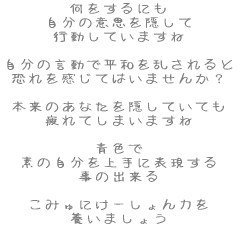 何をするにも
自分の意思を隠して
行動していますね
自分の言動で平和を乱されると
恐れを感じてはいませんか？
本来のあなたを隠していても
疲れてしまいますね
青色で
素の自分を上手に表現する
事の出来る
こみゅにけーしょん力を
養いましょう